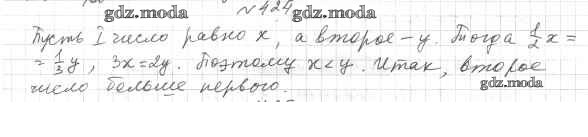 №424
gdz.moda gdz.moda
Пусть I число равно x, а второе - y. Тогда 1/2 x =
= 1/3 y, 3x=2y. Поэтому x<y. Итак, второе
число больше первого. gdz.moda